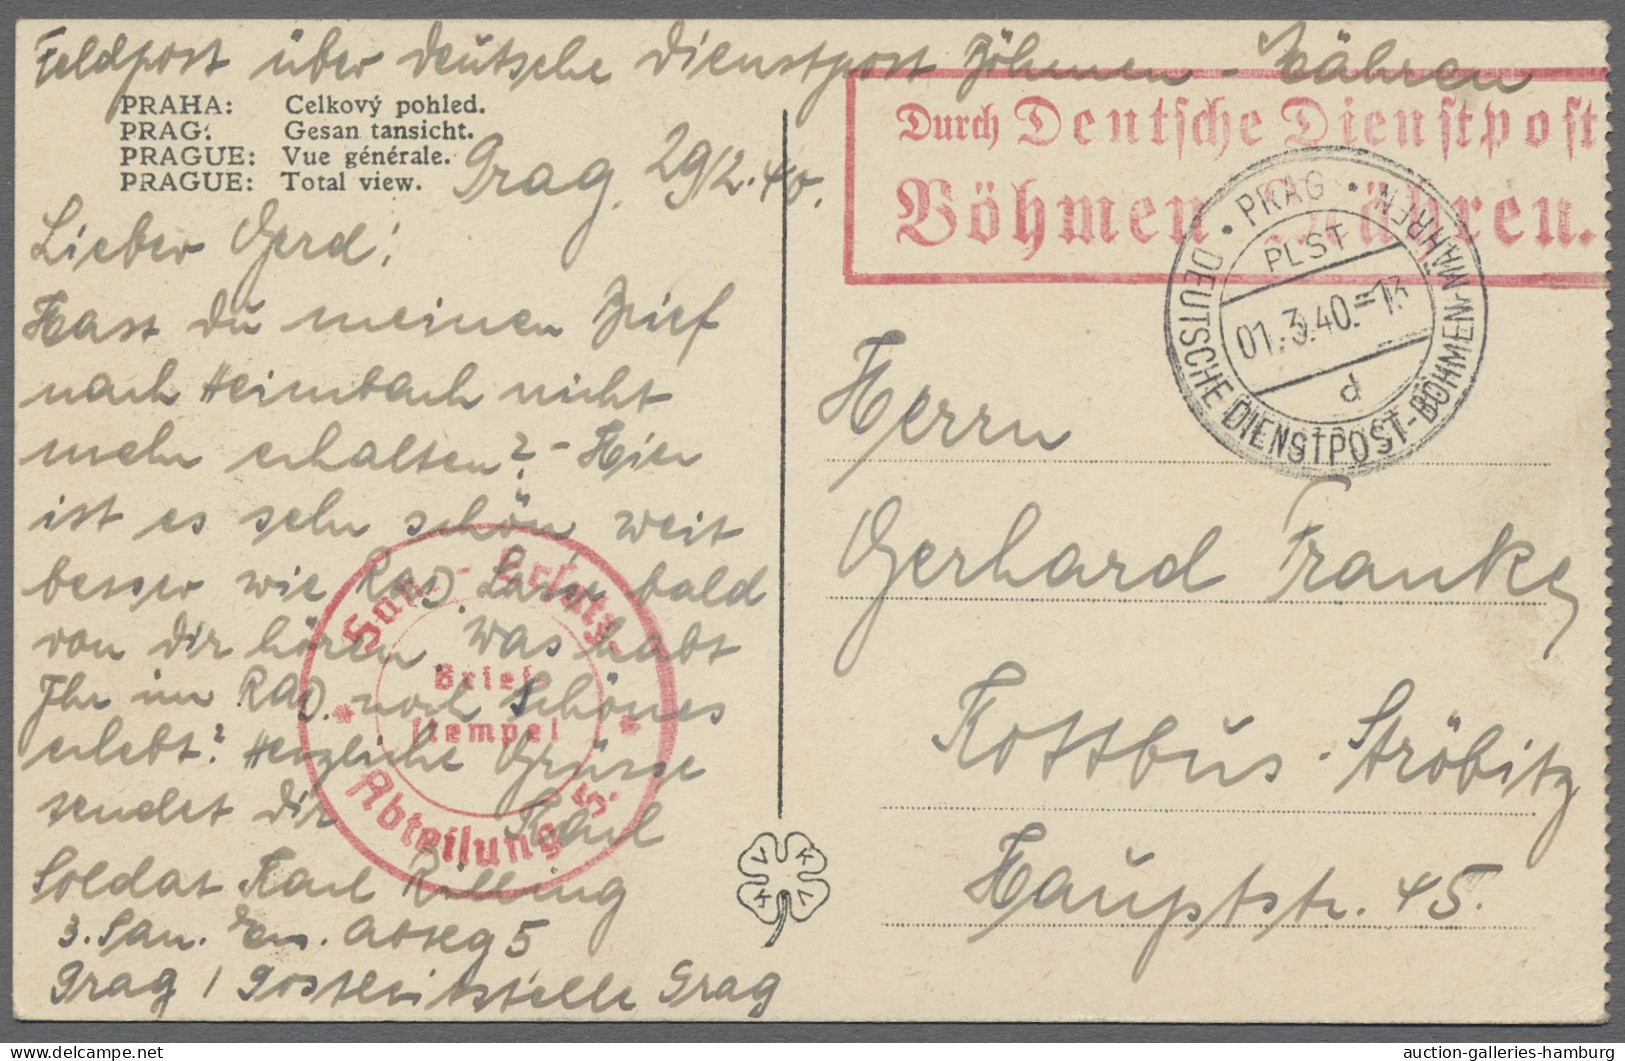 Feldpost über Deutsche Dienstpost Böhmen - Mähren
PRAHA: Celkový pohled.
PRAG: Gesan tansicht.
PRAGUE: Vue générale.
PRAGUE: Total view.
Prag, 29/2.40.
Lieber Gerd!
Hast du meinen Brief
nach Heimbach nicht
mehr erhalten? - Hier
ist es sehr schön, weit
besser wie RAD. Lass bald
von dir hören. Was habt
Ihr im RAD. noch Schönes
erlebt? Herzliche Grüsse
sendet dir Karl
Soldat Karl Rilling
3. San. Ers. Abtlg 5
Prag / Postleitstelle Prag
San. - Ersatz
Brief-
stempel
Abteilung 5.
Durch Deutsche Dienstpost
Böhmen Mähren.
PRAG
PLST
01.3.40.-13
d
DEUTSCHE DIENSTPOST-BÖHMEN-MÄHREN
Herrn
Gerhard Franke
Kottbus-Ströbitz
Hauptstr. 45.
V K V K
auction-galleries-hamburg